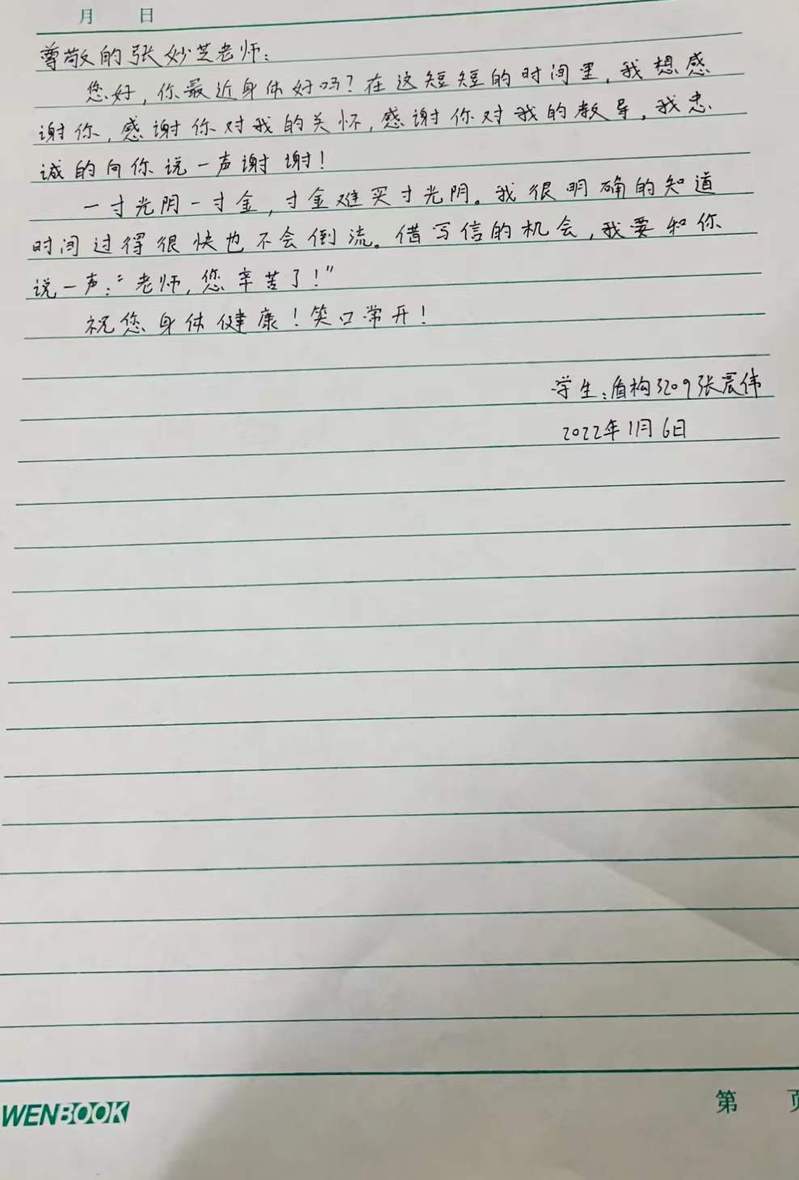 月 日
尊敬的张妙芝老师:
您好,你最近身体好吗?在这短短的时间里,我想感
谢你,感谢你对我的关怀,感谢你对我的教导,我忠
诚的向你说一声谢谢!
一寸光阴一寸金,寸金难买寸光阴。我很明确的知道
时间过得很快也不会倒流。借写信的机会,我要和你
说一声:“老师,您辛苦了!”
祝您身体健康!笑口常开!
学生:盾构3209张宸伟
2022年1月6日
WENBOOK
第 页